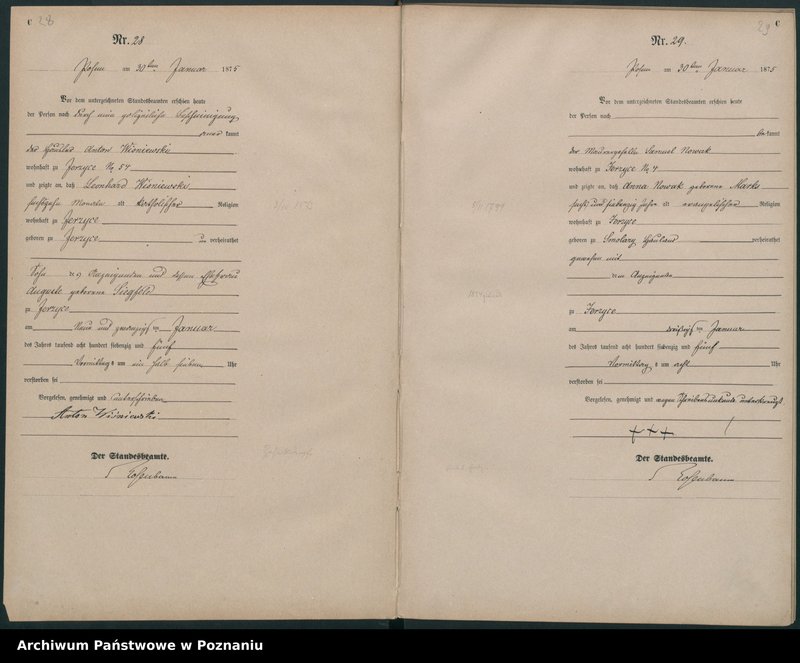 C 28
Nr. 28
Posen am 30ten Januar 1875
Vor dem unterzeichneten Standesbeamten erschien heute
der Person nach durch eine polizeiliche Bescheinigung
anerkannt
der Anton Wisniewski
wohnhaft zu Jerzyce No 54
und zeigte an, daß Leonhard Wisniewski
Monate alt katholischer Religion
wohnhaft zu Jerzyce
geboren zu Jerzyce unverheirathet
Sohn des Anzeigenden und dessen Ehefrau
Auguste geborene Siegfeld
zu Jerzyce
am Neun und zwanzigsten Januar
des Jahres tausend acht hundert siebenzig und fünf
Vormittags um ein halb sieben Uhr
verstorben sei
Vorgelesen, genehmigt und unterschrieben
Anton Wisniewski
Der Standesbeamte.
29 C
Nr. 29.
Posen am 30ten Januar 1875
Vor dem unterzeichneten Standesbeamten erschien heute
der Person nach
bekannt
der Maurergeselle Samuel Nowak
wohnhaft zu Jerzyce No 4
und zeigte an, daß Anna Nowak geborene Marks
sechs und siebenzig Jahre alt evangelischer Religion
wohnhaft zu Jerzyce
geboren zu Smolary verheirathet
gewesen mit
dem Anzeigenden
zu Jerzyce
am dreißigsten Januar
des Jahres tausend acht hundert siebenzig und fünf
Vormittags um acht Uhr
verstorben sei
Vorgelesen, genehmigt und wegen Schreibensunkunde unterkreuzt
+++
Der Standesbeamte.
Archiwum Państwowe w Poznaniu